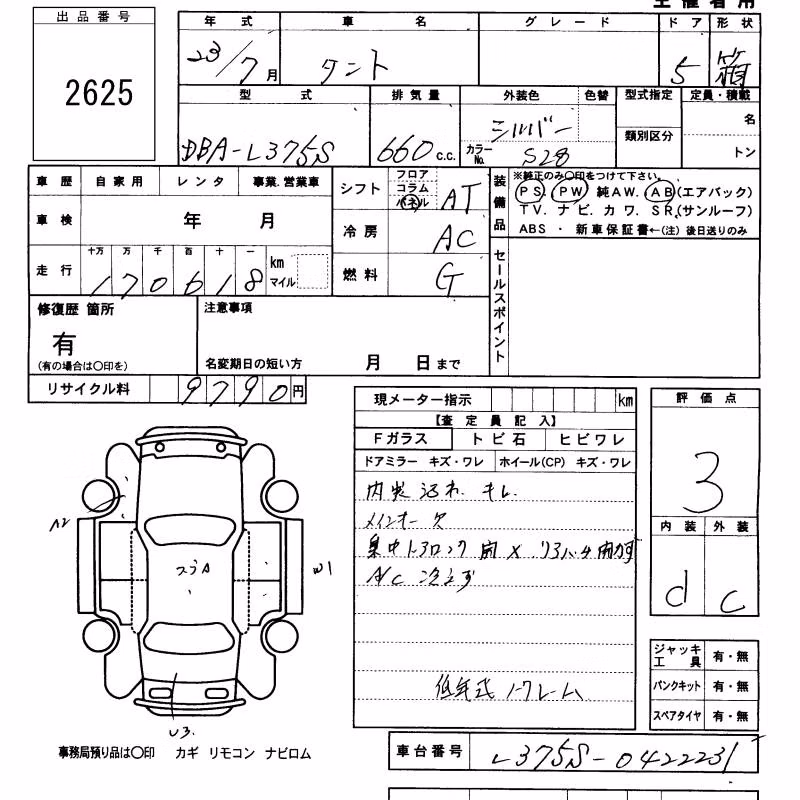 出品番号
2625
年式 車名 グレード ドア 形状
23/7月 タント 5 箱
型式 排気量 外装色 色替 型式指定 定員・積載
DBA-L375S 660 c.c. シルバー 名
カラーNo. S28 類別区分 トン
車歴 自家用 レンタ 事業.営業車
シフト フロア コラム パネル AT
装備品 ※純正のみ〇印をつけて下さい。
PS PW 純AW. AB(エアバック)
TV. ナビ. カワ. SR.(サンルーフ)
ABS ・ 新車保証書←(注) 後日送りのみ
車検 年 月
冷房 AC
走行 十万 万 千 百 十 一
170618 km マイル
燃料 G
セールスポイント
修復歴 箇所
有
(有の場合は〇印を)
注意事項
名変期日の短い方 月 日まで
リサイクル料 9790円
現メーター指示 km
【査定員記入】
Fガラス トビ石 ヒビワレ
ドアミラー キズ・ワレ ホイール(CP) キズ・ワレ
内装 汚れ. キレ.
メインキー欠
集中ドアロック 開 ×
A/C 冷えず
低年式 ノークレーム
評価点
3
内装 外装
d c
A2
W1
U3.
ジャッキ 工具 有・無
パンクキット 有・無
スペアタイヤ 有・無
事務局預り品は〇印 カギ リモコン ナビロム
車台番号 L375S-0422231